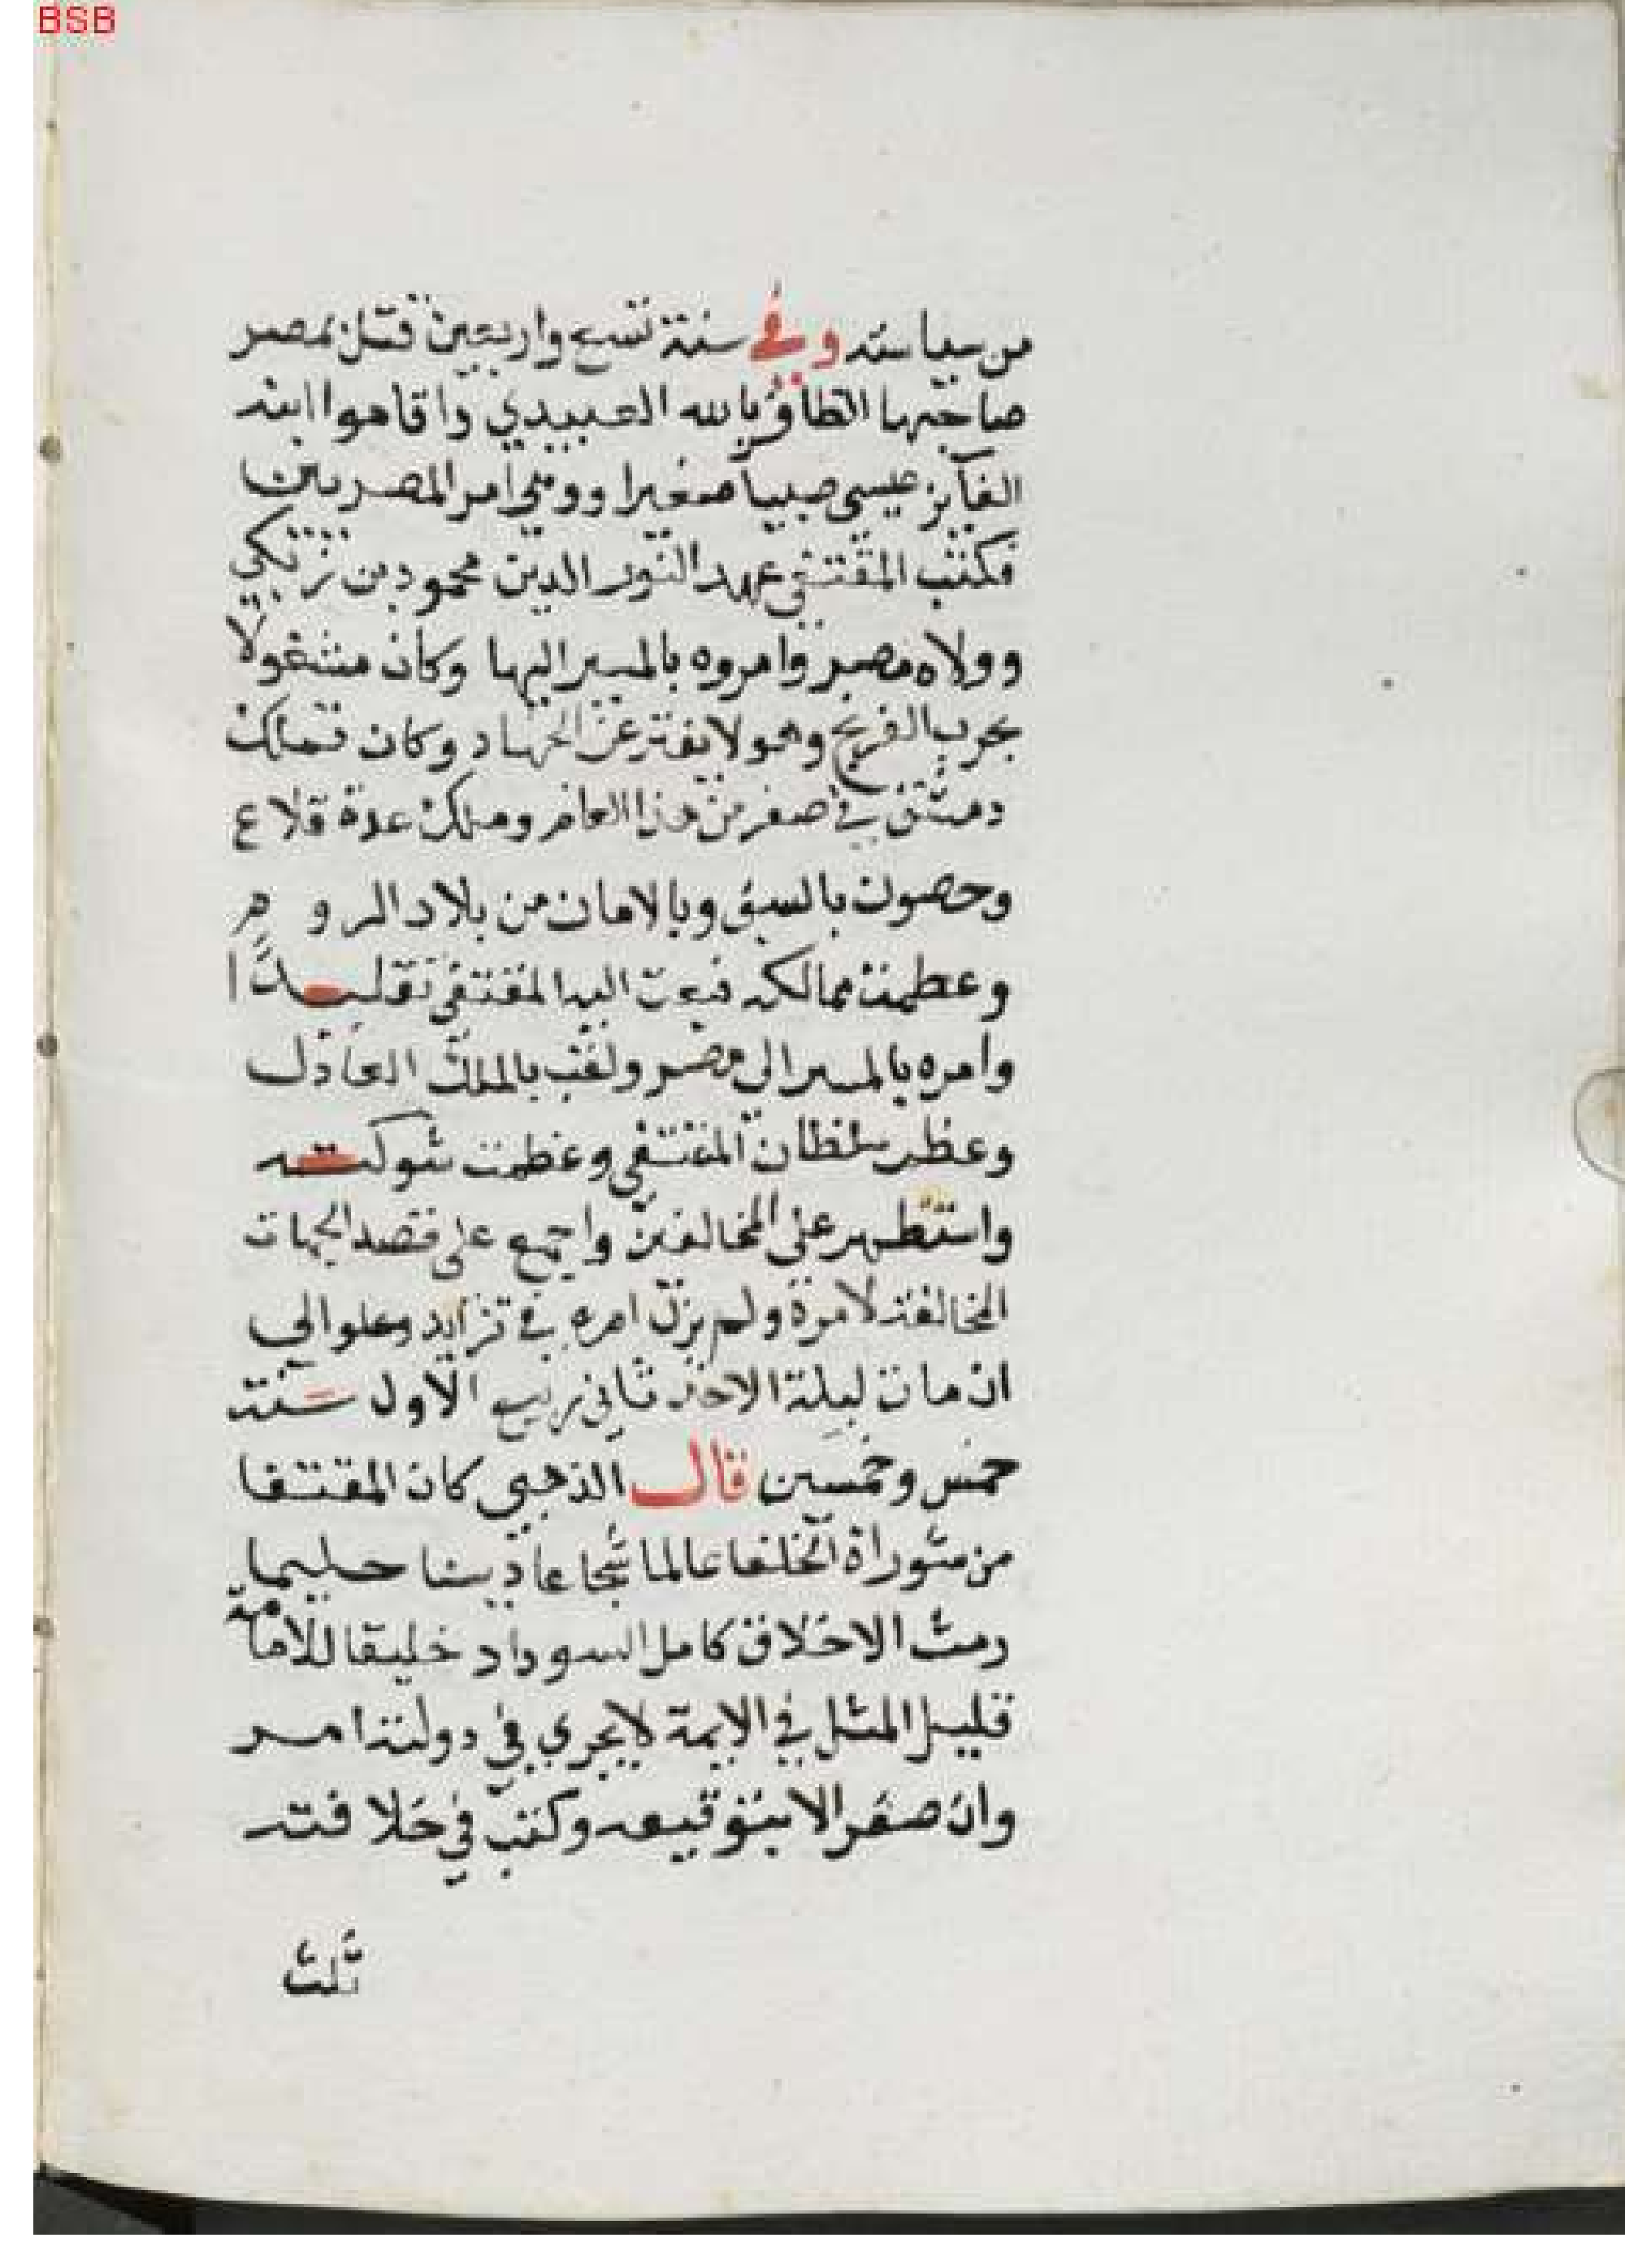 BSB
من سياسته وفي سنة تسع واربعين قتل بمصر
صاحبها الظافر بالله العبيدي واقاموا ابنه
الفآيز عيسى صبياً صغيرا ووهى امر المصريين
فكتب المقتفي عهد النور الدين محمود بن زنكي
وولاه مصر وامروه بالمسير اليها وكان مشغولا
بحرب الفرنج وهو لا يفتر عن الجهاد وكان تملك
دمشق في صفر من هذا العام وملك عدة قلاع
وحصون بالسيف وبالامان من بلاد الروم
وعظمت ممالكه فبعث اليه المقتفي تقليدًا
وامره بالمسير الى مصر ولقب بالملك العادل
وعظم سلطان المقتفي وعظمت شوكته
واستظهر على المخالفين واجمع على قصد الجهات
المخالفة لامرة ولم يزل امره في تزايد وعلو الي
ان مات ليلة الاحد ثاني ربيع الاول سنة
خمس وخمسين قال الذهبي كان المقتفا
من سوراة الخلفا عالما شجاعا دينا حليما
رمث الاخلاق كامل السوداد خليقا للامامة
قليل المثل في الايمة لا يجري في دولته امر
وان صغر الا بتوقيعه وكتب في خلافته
ثلث